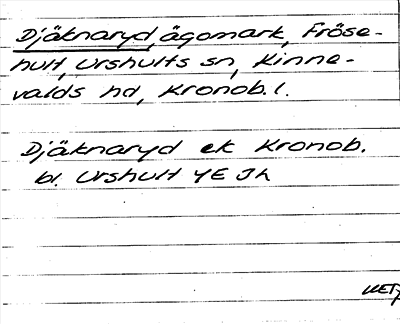 Djäknaryd, ägomark, Fröse-
hult, Urshults sn, Kinne-
valds hd, Kronob. l.
Djäknaryd ek Kronob.
bl. Urshult YE Jh